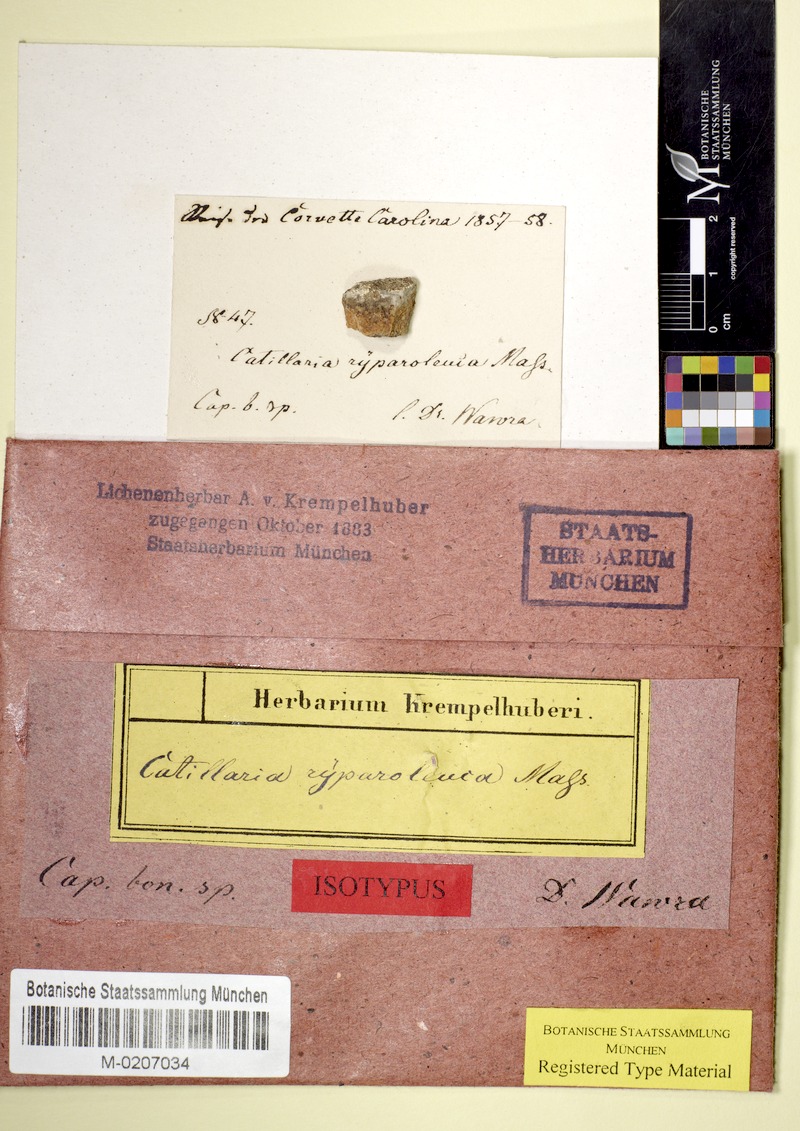 BOTANISCHE
STAATSSAMMLUNG
MÜNCHEN
copyright reserved
0 1 2
cm
Corvette Carolina 1857-58.
No 47.
Catillaria ryparoleuca Mass.
Cap. b. sp.
l. Dr. Wawra.
Lichenenherbar A. v. Krempelhuber
zugegangen Oktober 1883
Staatsherbarium München
STAATS-
HERBARIUM
MÜNCHEN
Herbarium Krempelhuberi.
Catillaria ryparoleuca Mass.
Cap. bon. sp.
ISOTYPUS
D. Wawra
Botanische Staatssammlung München
M-0207034
BOTANISCHE STAATSSAMMLUNG
MÜNCHEN
Registered Type Material